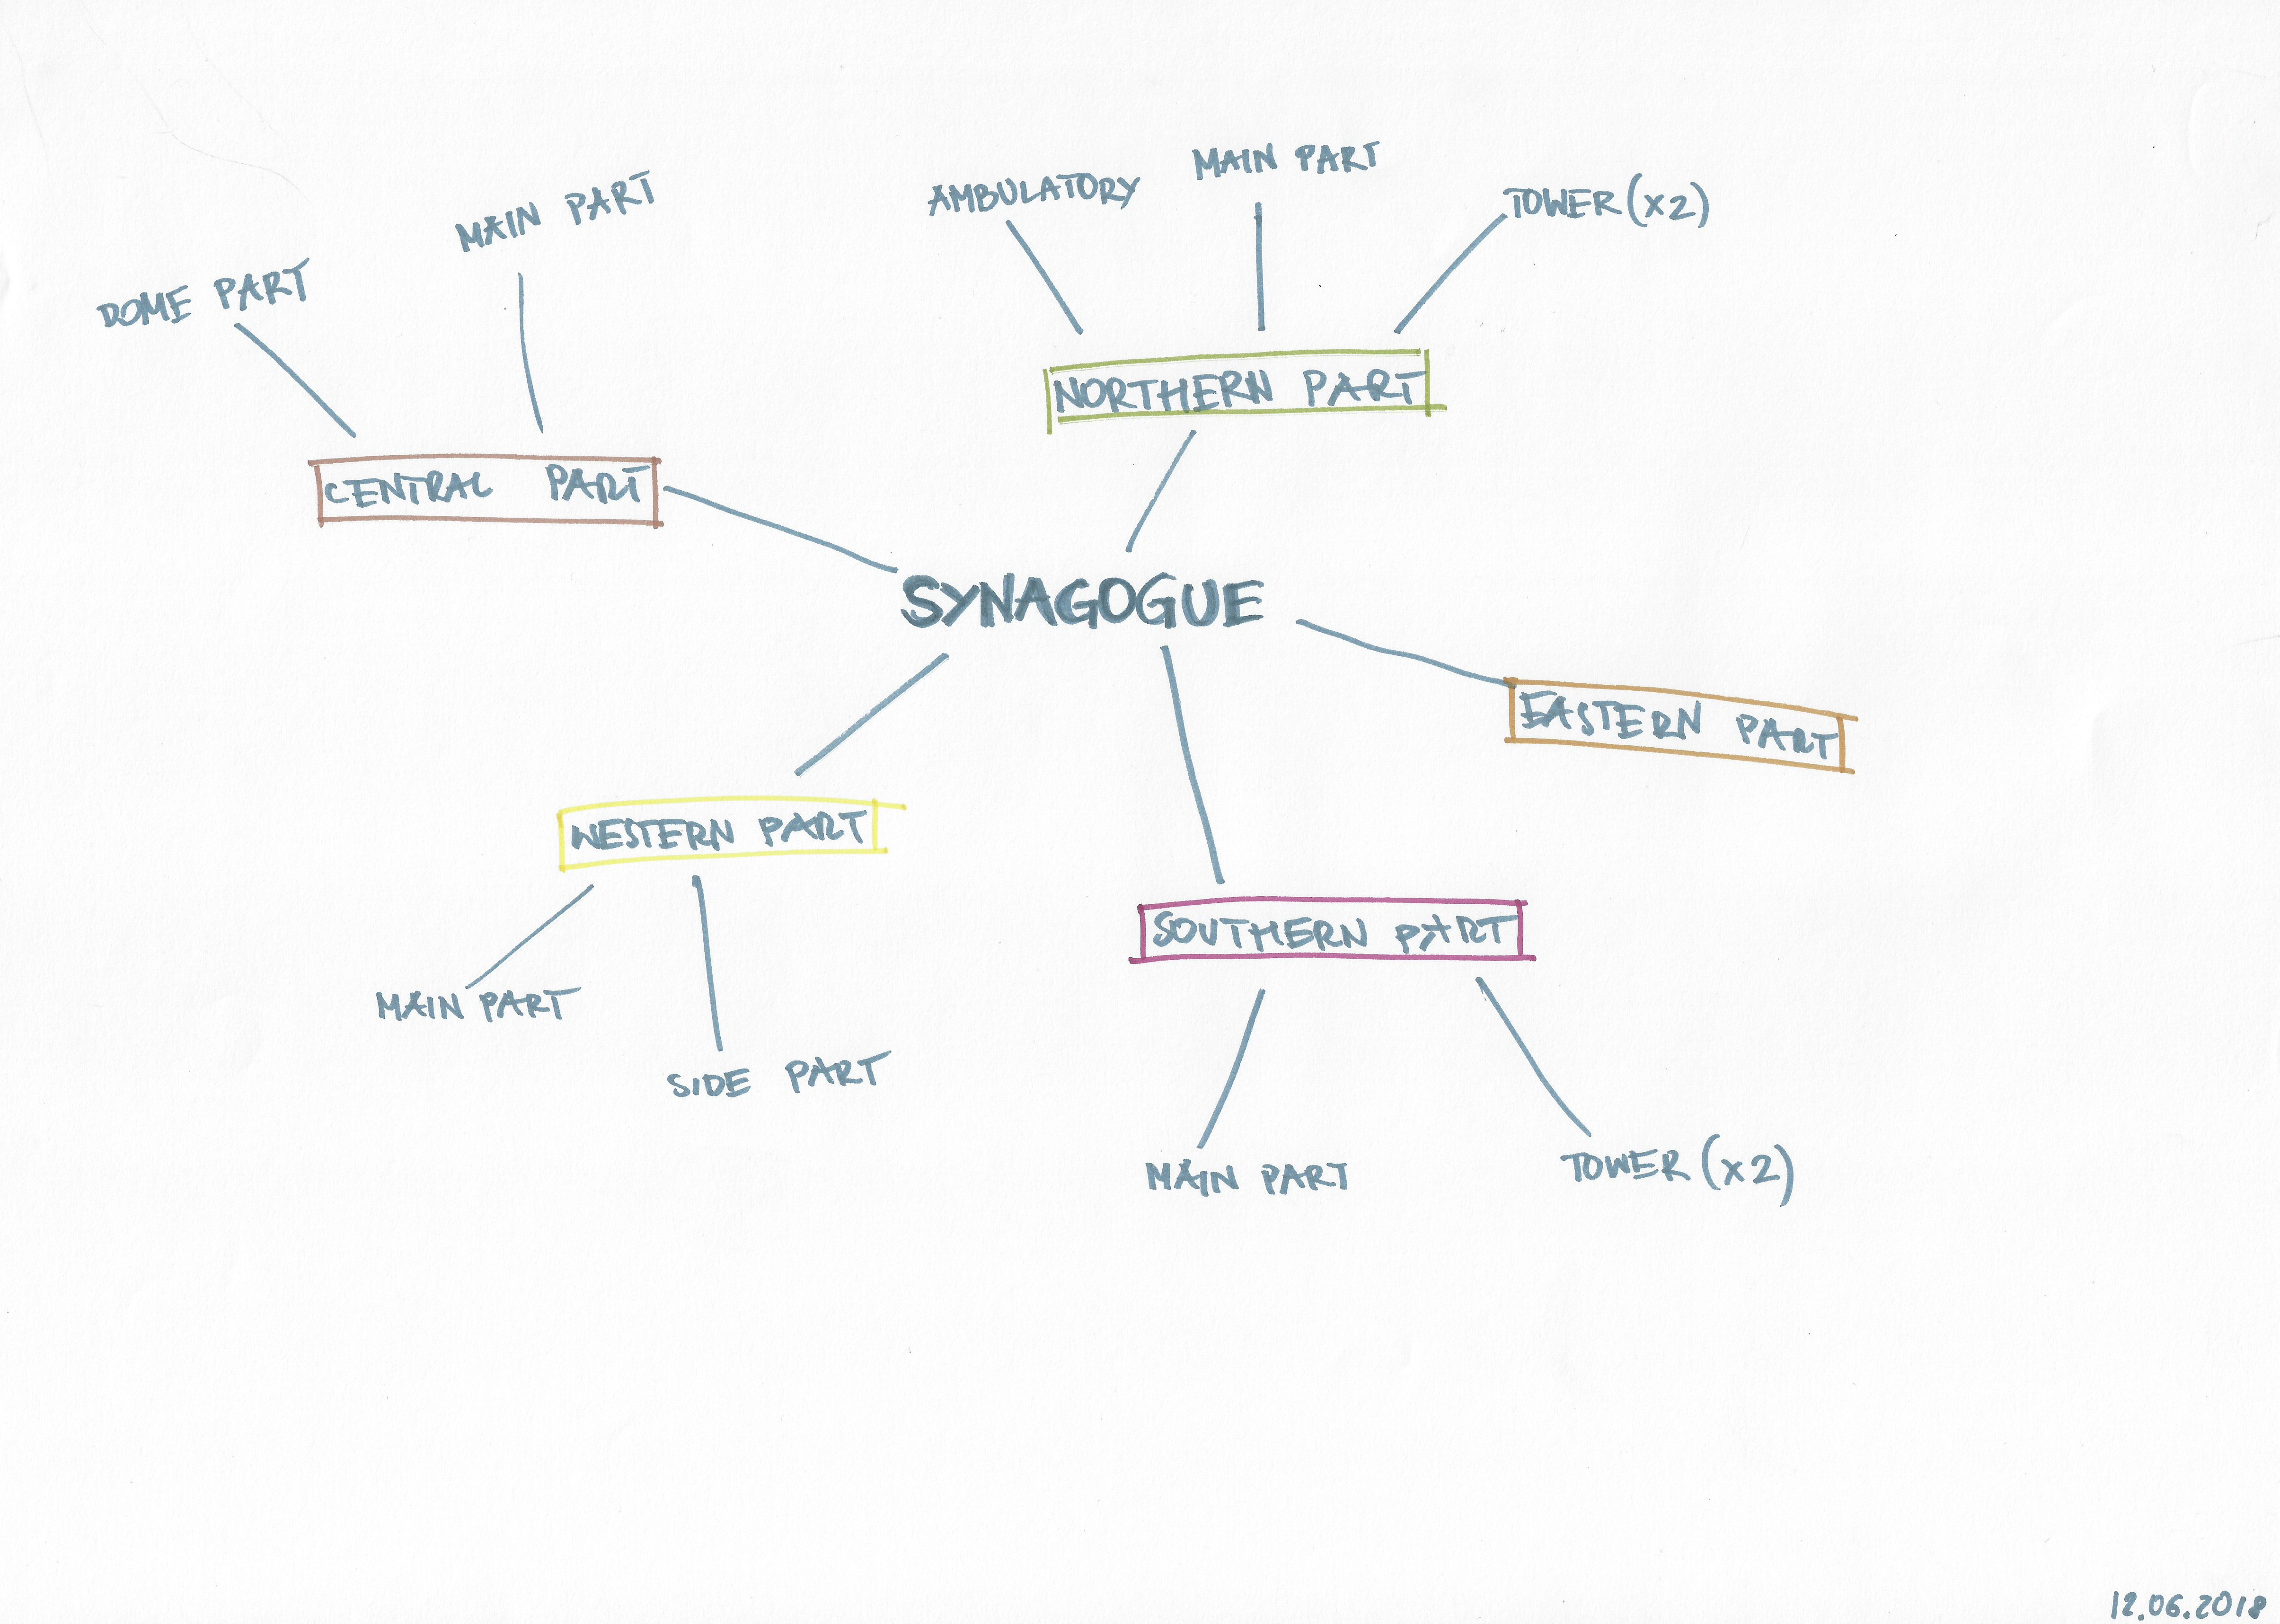 MAIN PART
AMBULATORY
TOWER (X2)
MAIN PART
DOME PART
NORTHERN PART
CENTRAL PART
SYNAGOGUE
EASTERN PART
WESTERN PART
SOUTHERN PART
MAIN PART
SIDE PART
MAIN PART
TOWER (X2)
12.06.2018